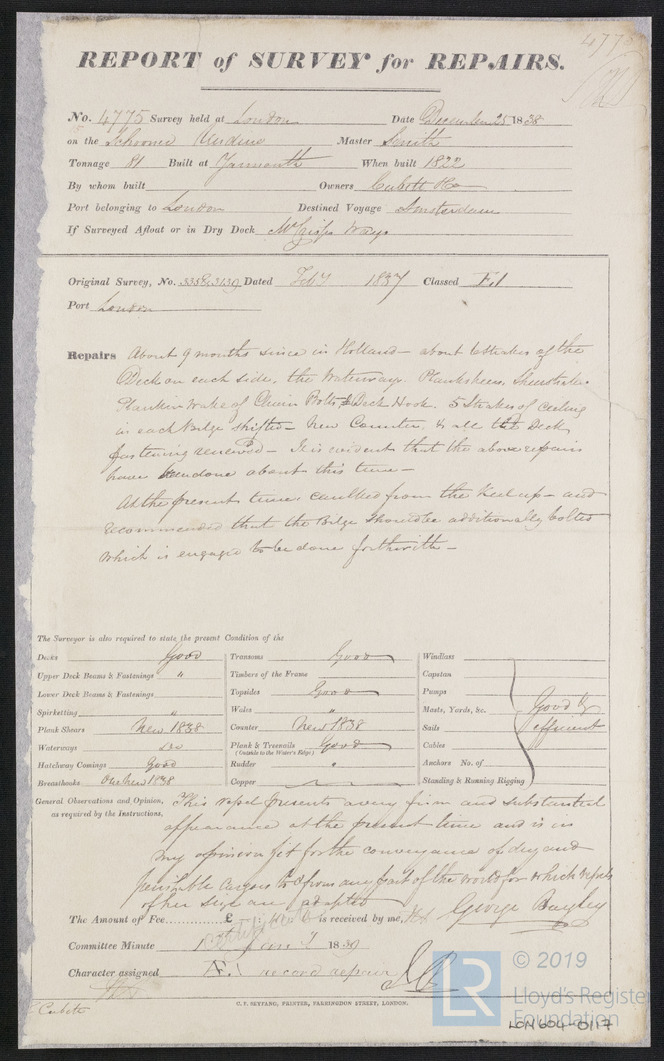 4775
REPORT of SURVEY for REPAIRS.
No. 4775 Survey held at London Date December 25 1838
on the Schooner Undine Master Smith
Tonnage 81 Built at Yarmouth When built 1822
By whom built Owners Cubitt & Co
Port belonging to London Destined Voyage Amsterdam
If Surveyed Afloat or in Dry Dock Mr Crisps Ways
Original Survey, No. Dated Feby 1837 Classed Æ.1
Port London
Repairs About 9 months since in Holland – about 6 strakes of the
Deck on each side, the Waterways. Planksheers, Sheerstrakes
Plank in Wake of Chain Bolts & Deck Hook. 5 Strakes of Ceiling
in each Bilge shifted – New Counter & all the Deck
fastening renewed – It is evident that the above repairs
have been done about this time –
At the present time caulked from the Keel up – and
recommended that the Bilge should be additionally bolted
which is engaged to be done forthwith –
The Surveyor is also required to state the present Condition of the
Decks Good
Upper Deck Beams & Fastenings "
Lower Deck Beams & Fastenings
Spirketting "
Plank Shears New 1838
Waterways do
Hatchway Comings Good
Breasthooks One New 1838
Transoms Good
Timbers of the Frame
Topsides Good
Wales "
Counter New 1838
Plank & Treenails Good
(Outside to the Water's Edge)
Rudder "
Copper
Windlass
Capstan
Pumps
Masts, Yards, &c. Good &
Sails efficient
Cables
Anchors No. of
Standing & Running Rigging
General Observations and Opinion, This vessel presents a very firm and substantial
as required by the Instructions, appearance at the present time and is in
my opinion fit for the conveyance of dry and
perishable cargoes to & from any part of the world for which vessels
of her size are adapted
The Amount of Fee £ 1 : is received by me, George Bayley
Committee Minute 1st Jany 1839
Character assigned Æ.1 record repairs
C. F. SEYFANG, PRINTER, FARRINGDON STREET, LONDON.
Cubitt
LR
© 2019
Lloyd's Register
Foundation
LON604-0117